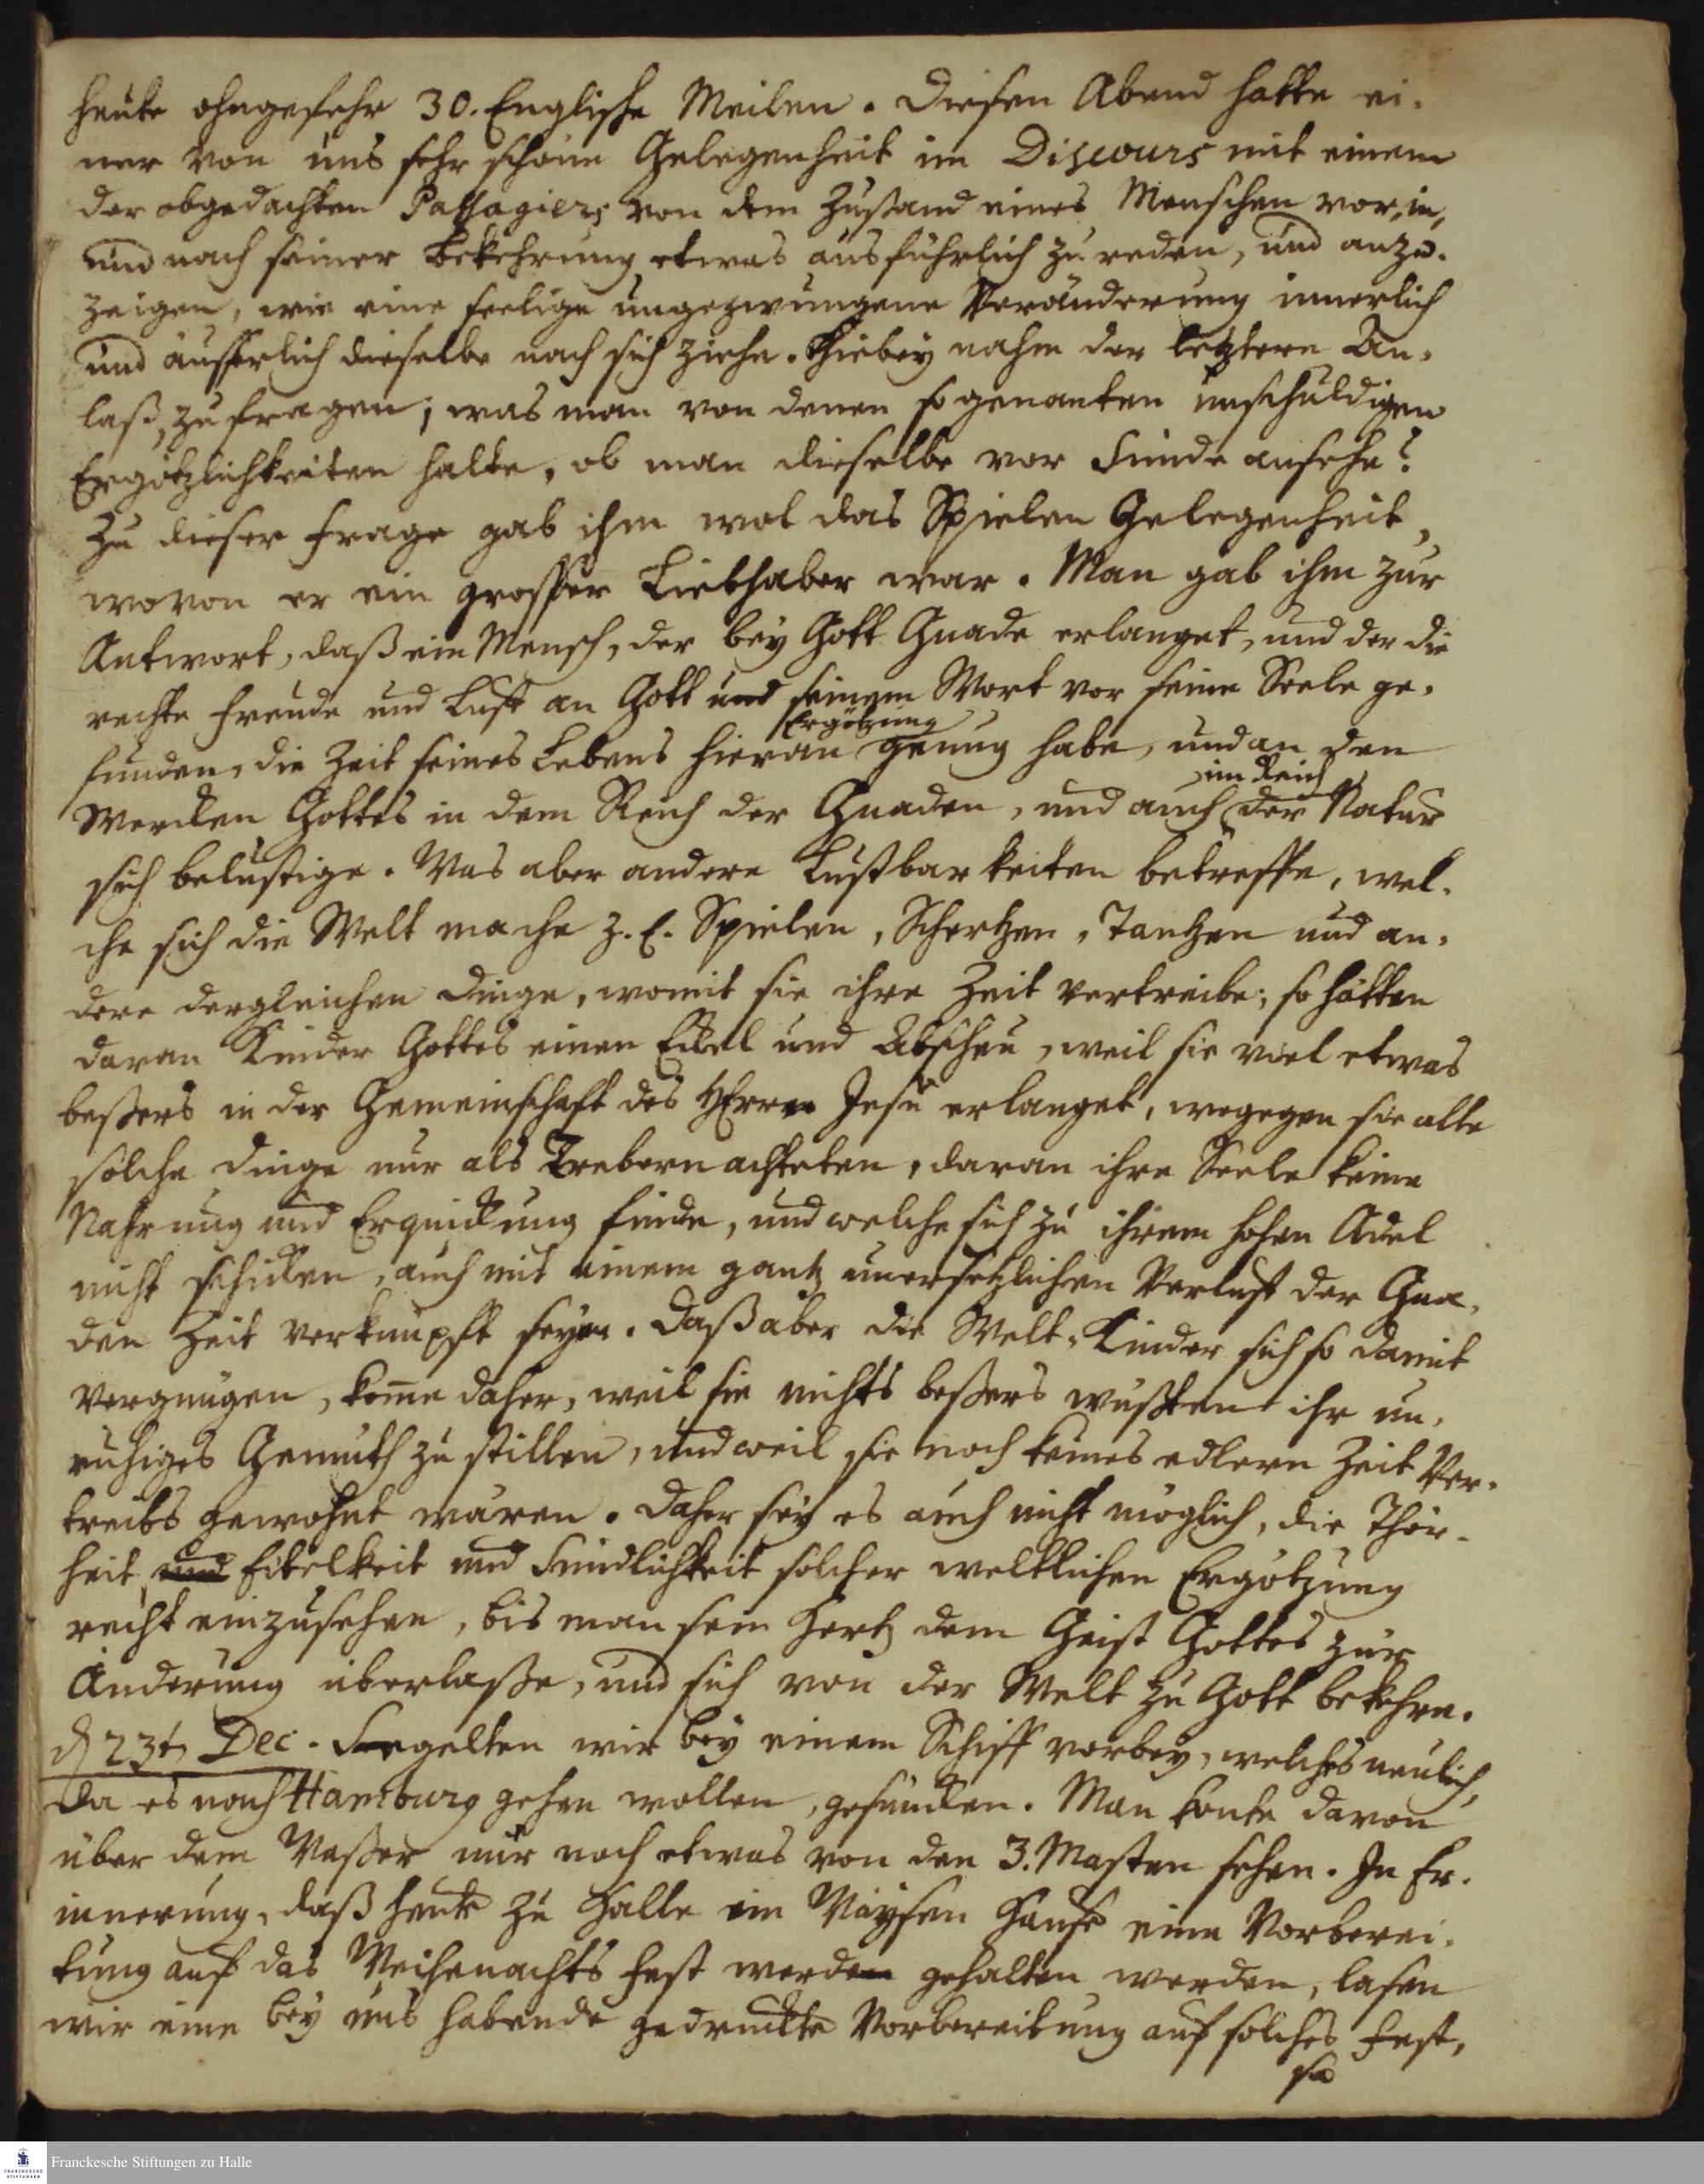 heute ohngefehr 30. Englische Meilen. Diesen Abend hatte ei-
ner von uns sehr schöne Gelegenheit im Discours mit einem
der obgedachten Passagiers von dem Zustand eines Menschen vor, in,
und nach seiner Bekehrung etwas ausführlich zu reden, und anzu-
zeigen, wie eine seelige ungezwungene Veränderung innerlich
und äusserlich dieselbe nach sich ziehe. Hiebey nahm der letztere An-
laß, zu fragen, was man von denen so genanten unschuldigen
Ergötzlichkeiten halte, ob man dieselbe vor Sünde ansehe?
Zu dieser Frage gab ihm wol das Spielen Gelegenheit,
wovon er ein grosser Liebhaber war. Man gab ihm zur
Antwort, daß ein Mensch, der bey Gott Gnade erlanget, und der die
rechte Freude und Lust an Gott und seinem Wort vor seine Seele ge-
funden, die Zeit seines Lebens hieran Ergötzung genug habe, und an den
Wercken Gottes in dem Reich der Gnaden, und auch im Reich der Natur
sich belustige. Was aber andere Lustbarkeiten betreffe, wel-
che sich die Welt mache z. E. Spielen, Schertzen, Tantzen und an-
dere dergleichen Dinge, womit sie ihre Zeit vertreibe; so hätten
daran Kinder Gottes einen Eckel und Abscheu, weil sie viel etwas
beßers in der Gemeinschaft des HErrn Jesu erlanget, wogegen sie alle
solche Dinge nur als Trebern achteten, daran ihre Seele keine
Nahrung und Erquickung finde, und welche sich zu ihrem hohen Adel
nicht schicken, auch mit einem gantz unersetzlichen Verlust der Gna-
den Zeit verknüpft seyen. Daß aber die Welt-Kinder sich so damit
vergnügen, kome daher, weil sie nichts beßers wusten ihr un-
ruhiges Gemüth zu stillen, und weil sie noch keines edlern Zeit Ver-
treibs gewohnt wären. Daher sey es auch nicht möglich, die Thor-
heit, und Eitelkeit und Sündlichkeit solcher weltlichen Ergötzung
recht einzusehen, bis man sein Hertz dem Geist Gottes zur
Änderung überlaße, und sich von der Welt zu Gott bekehre.
d 23t Dec. Seegelten wir bey einem Schiff vorbey, welches neulich,
da es nach Hamburg gehen wollen, gesuncken. Man konte davon
über dem Waßer nur noch etwas von den 3. Masten sehen. In Er-
innerung, daß heute zu Halle im Waysen Hause eine Vorberei-
tung auf das Weihenachts Fest werde gehalten werden, lasen
wir eine bey uns habende gedruckte Vorbereitung auf solches Fest,
so
Franckesche Stiftungen zu Halle